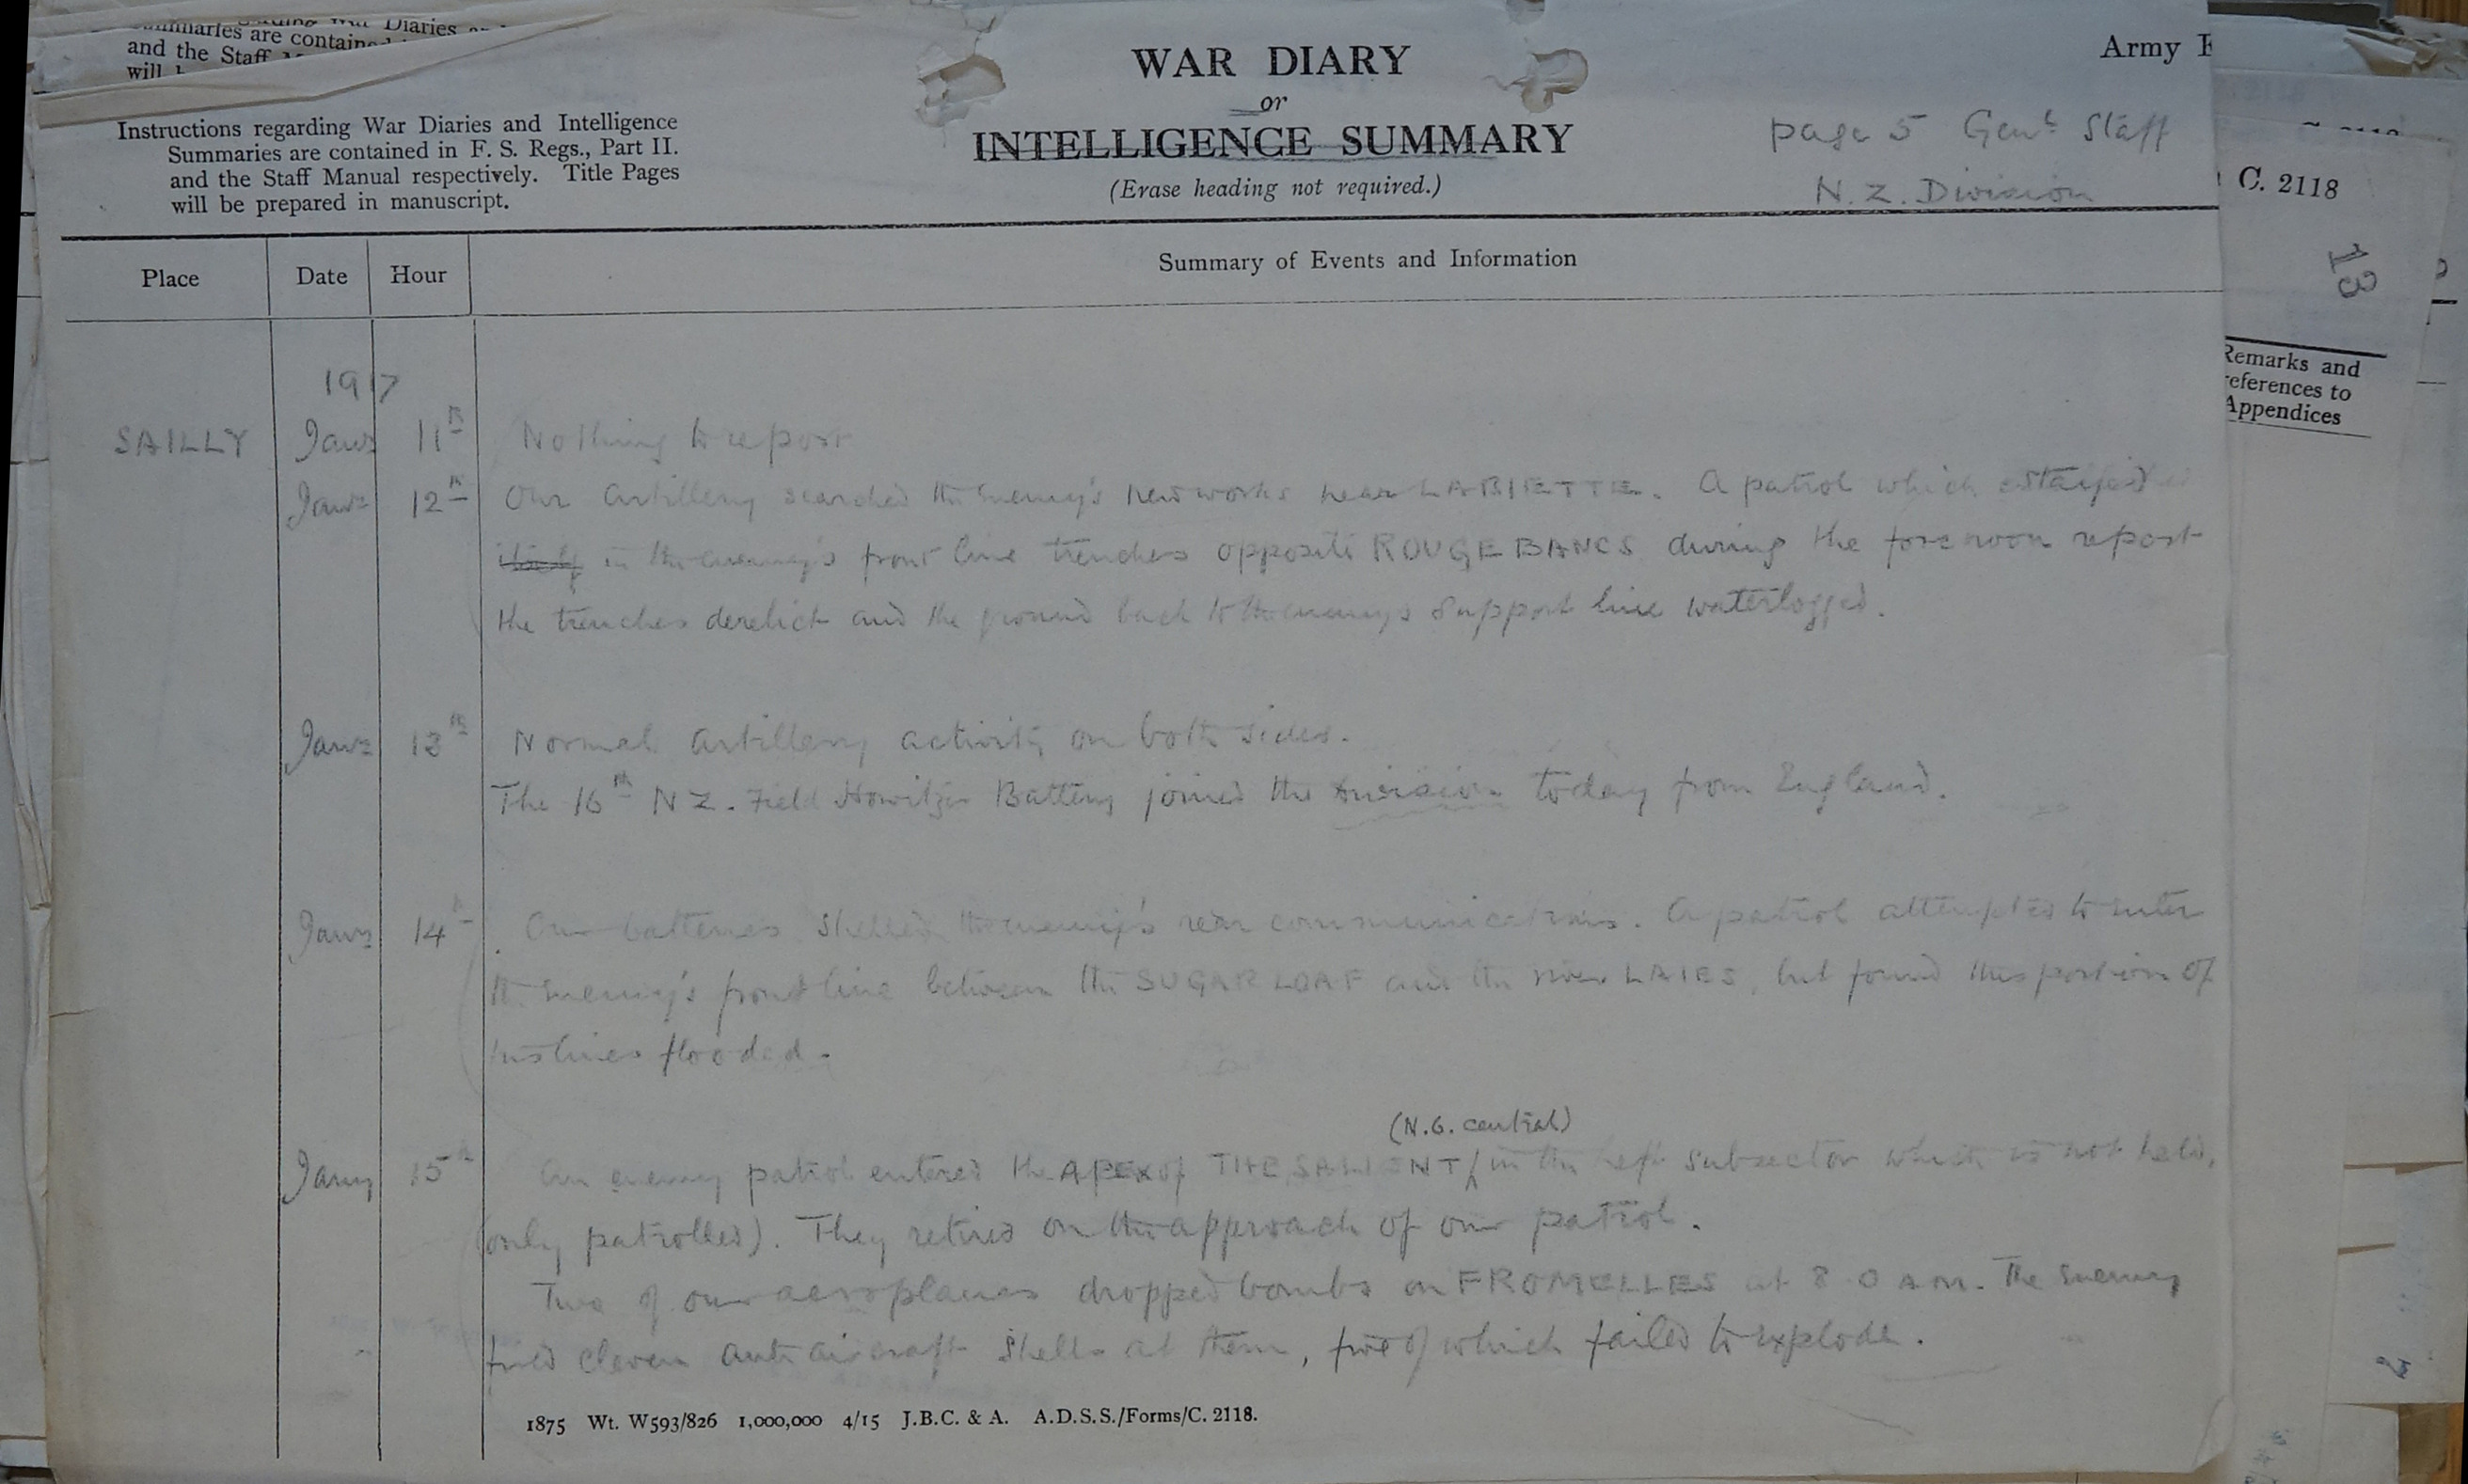 and the Staff
will
WAR DIARY
or
INTELLIGENCE SUMMARY
(Erase heading not required.)
Army F
Instructions regarding War Diaries and Intelligence
Summaries are contained in F. S. Regs., Part II.
and the Staff Manual respectively. Title Pages
will be prepared in manuscript.
page 5 Genl Staff
N. Z. Division
C. 2118
13
Place Date Hour Summary of Events and Information
Remarks and
references to
Appendices
1917
SAILLY Jany 11th Nothing to report
Jany 12th Our Artillery searched the enemy's new works near LABIETTE. A patrol which
in the enemy's front line trenches opposite ROUGE BANCS during the forenoon report
the trenches derelict and the ground back to the enemy's support line waterlogged.
Jany 13th Normal artillery activity on both sides.
The 16th N Z. Field Howitzer Battery joined the Division today from England.
Jany 14th Our batteries shelled the enemy's rear communications. A patrol attempted to enter
the enemy's front line between the SUGAR LOAF and the river LAIES, but found this portion of
his lines flooded.
(N.6. central)
Jany 15th An enemy patrol entered the APEX of THE SALIENT in the left subsector which is not held,
(only patrolled). They retired on the approach of our patrol.
Two of our aeroplanes dropped bombs on FROMELLES at 8 0 AM. The enemy
fired eleven anti aircraft shells at them, five of which failed to explode.
1875 Wt. W593/826 1,000,000 4/15 J.B.C. & A. A.D.S.S./Forms/C. 2118.